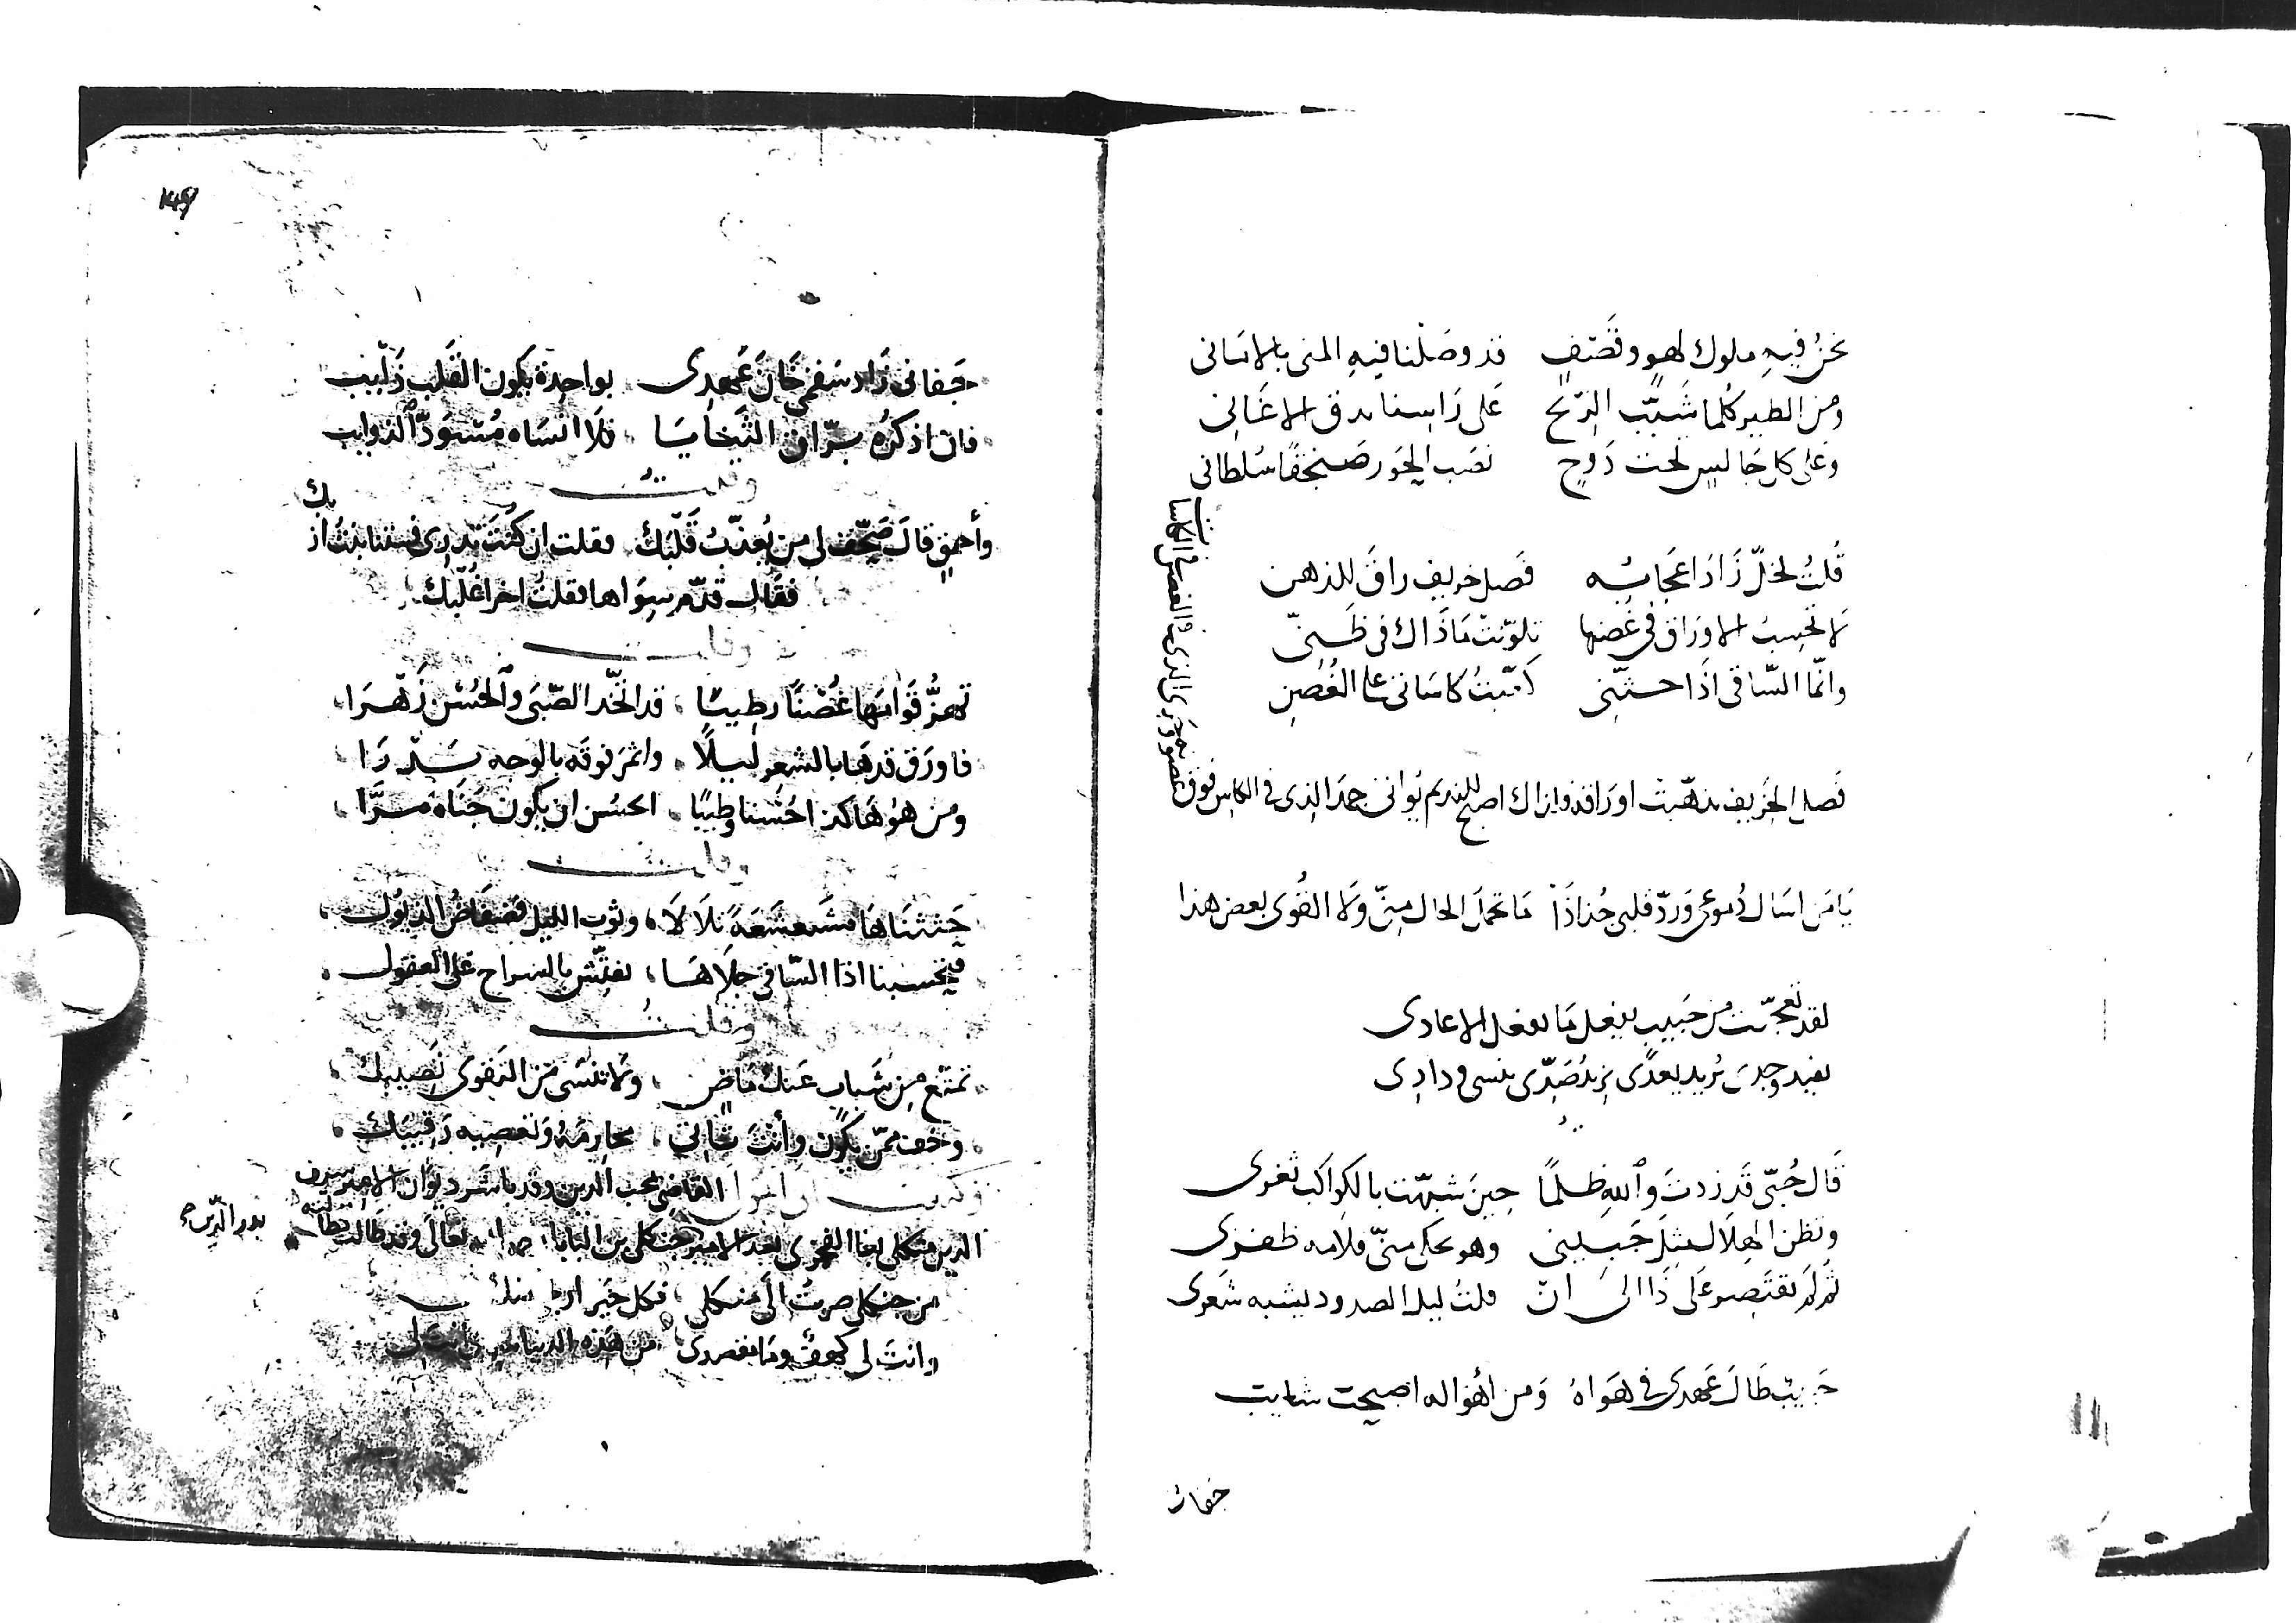 نحنُ فيه ملوك لهو وقصف قد وصلنا فيه المنى بالاماني
ومن الطير كلما شبّب الريح على راسنا بدق الاغاني
وعلى كل جالس تحت دوح نصب الحور صنجقا سلطاني
قلت لخلّ زاد اعجابه فصل خريف راق للذهن
لا تحسب الاوراق في غصنها تلوّنت ما ذاك في ظنّي
وانّما الساقي اذا حثّني رميتُ كاساتي على الغُصن
فصل الخريف تذهّبت اوراقه ولذاك اصبح للنديم يُواني جمد الذي في الكاس فوق
غصونه وجرى الذي في الغصن في الكاسات
يا من اسال دموعي وردّ قلبي جُذاذا ما تحمل الحال منّي ولا القُوى بعض هذا
لقد تعجبت من حبيب يفعل ما يفعل الاعادي
يفيد وجدي يُريد بعدي يزيد صدّي ينسى ودادي
قال حُبّي قد زدت والله ظلمًا حين شبهت بالكواكب ثغري
وتظن الهلال مثل جبيني وهو يحكي منّي قلامه ظفري
ثم لم تقتصر على ذا الى ان قلتُ ليل الصدود يشبه شعري
حبيب طال عهدي في هواه ومن اهواله اصبحت شايب
جفاني
149
جفاني زاد سقمي خان عهدي بواحدة يكون القلب ذايب
فان اذكره سرّا في فلا انساه مُسودّ الذوايب
وقلتُ
وأحمق قال صحّف لي من يُعذّبُ قلبك فقلت ان كنت تدري فستنا بنتُ از
بك
فقال قدّم سواها فقلتُ اخرا غُلّبك
وقلت
تهزُّ قوامها غُصنًا رطيبا قد اتخذ الصّبى والحُسن زهرا
فاورق قدها بالشعر ليلًا واثمر فوقه بالوجه بدرا
ومن هو هاكذا حُسنا وطيبًا احسُن ان يكون جناه مرّا
وقلت
حثثناها مشعشعة تلالا وثوب الليل فضفاضُ الذيول
فيحسبنا اذا الساقي جلاها نفتّش بالسراح على العقول
وقلتُ
تمتّع من شباب عنك ماض ولا تنسى من التقوى نصيبك
وخف ممّن يكون وأنت خالي محارمهُ وتعصيه رقيبك
القاضي محب الدين وقد باشر ديوان الامير سيف
الدين منكلي بغا الفخري بعد الامير جنكلي بن البابا تعالى وقد طالت بطالته
بدر الدين
من جنكلي صرتُ الى منكلي فكل خير
وانت لي كهف وما مقصدي من هذه الدنيا انت لي